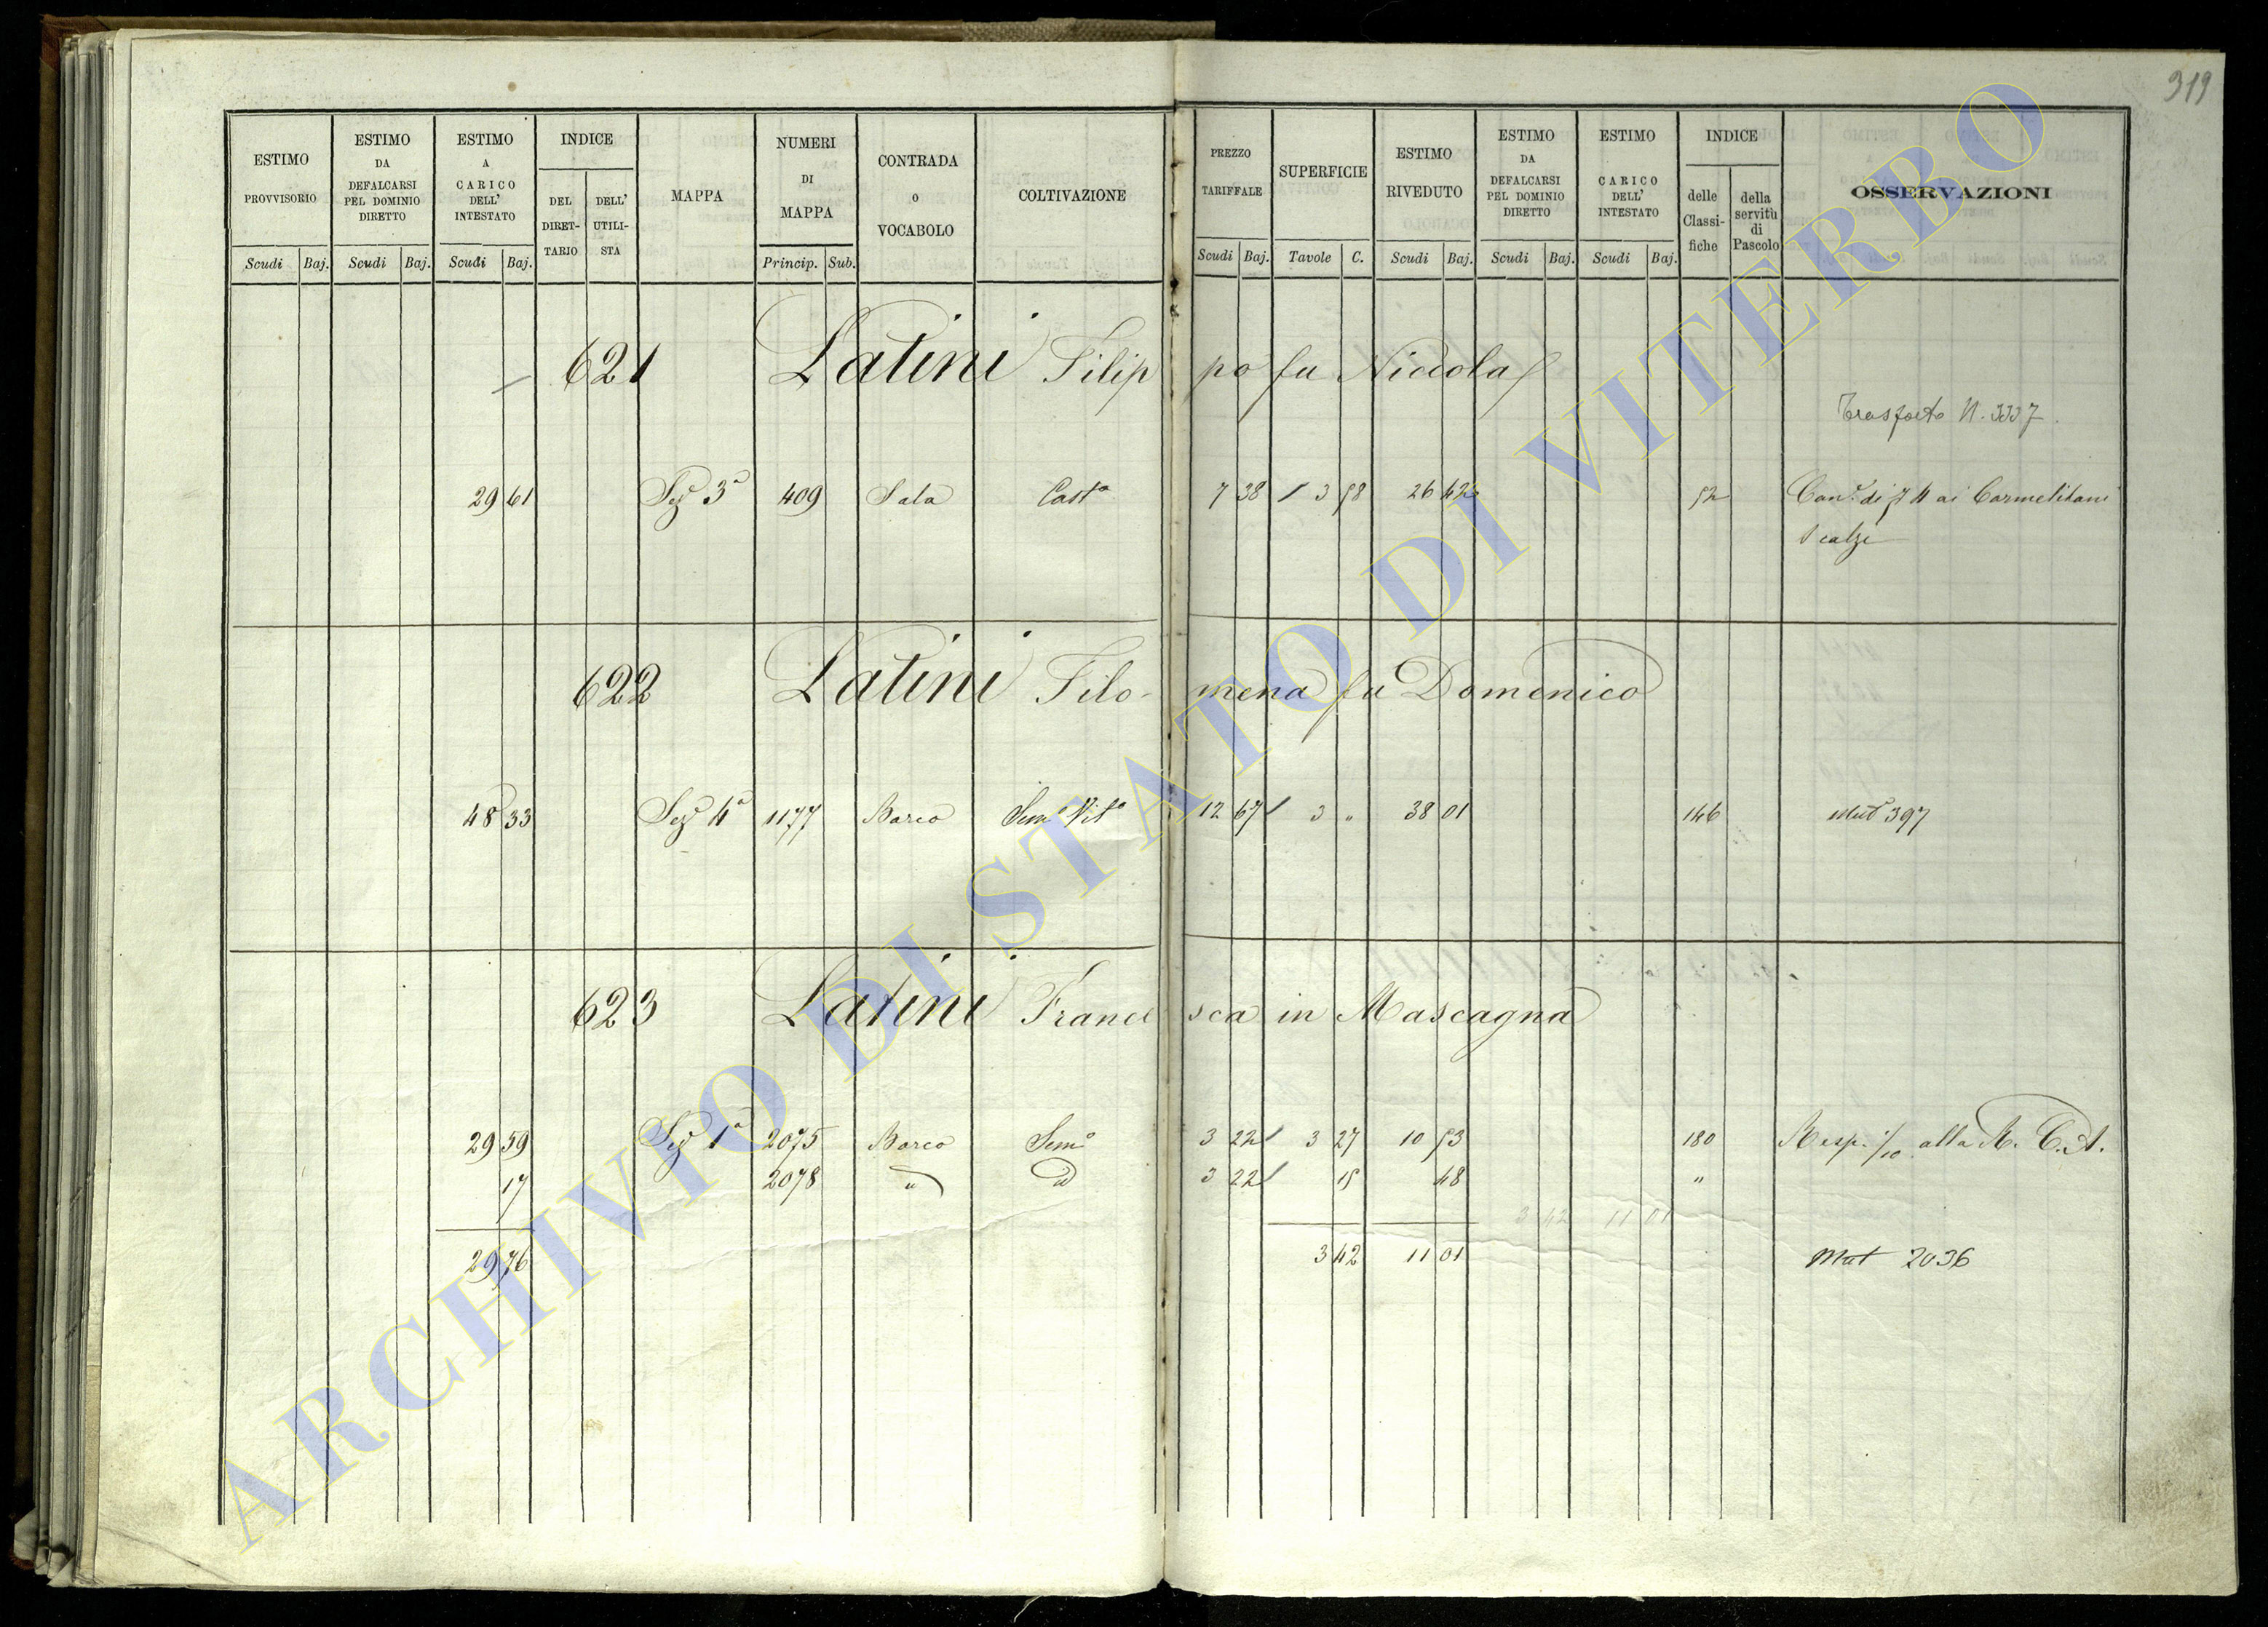 319
ESTIMO PROVVISORIO Scudi Baj.
ESTIMO DA DEFALCARSI PEL DOMINIO DIRETTO Scudi Baj.
ESTIMO A CARICO DELL' INTESTATO Scudi Baj.
INDICE DEL DIRET-TARIO DELL' UTILI-STA
MAPPA
NUMERI DI MAPPA Princip. Sub.
CONTRADA o VOCABOLO
COLTIVAZIONE
PREZZO TARIFFALE Scudi Baj.
SUPERFICIE Tavole C.
ESTIMO RIVEDUTO Scudi Baj.
ESTIMO DA DEFALCARSI PEL DOMINIO DIRETTO Scudi Baj.
ESTIMO A CARICO DELL' INTESTATO Scudi Baj.
INDICE delle Classi-fiche della servitù di Pascolo
OSSERVAZIONI
621 Latini Filip po fu Niccola
Trasporto N. 3337
29 61 Sez.e 3a 409 Sala Casto 7 38 3 58 26 42 52 Can.e di 74 ai Carmelitani
Scalzi
622 Latini Filo- mena fu Domenico
48 33 Sez.e 4a 1177 Barco Semo Vito 12 67 3 " 38 01 146 Mut 397
623 Latini France sca in Mascagna
29 59 Sez.e 1a 2075 Barco Semo 3 22 3 27 10 53 180 Resp. 1/10 alla R. C. A.
17 2078 " id 3 22 15 48 "
3 42 11 01
29 76 3 42 11 01 Mut 2036
ARCHIVIO DI STATO DI VITERBO